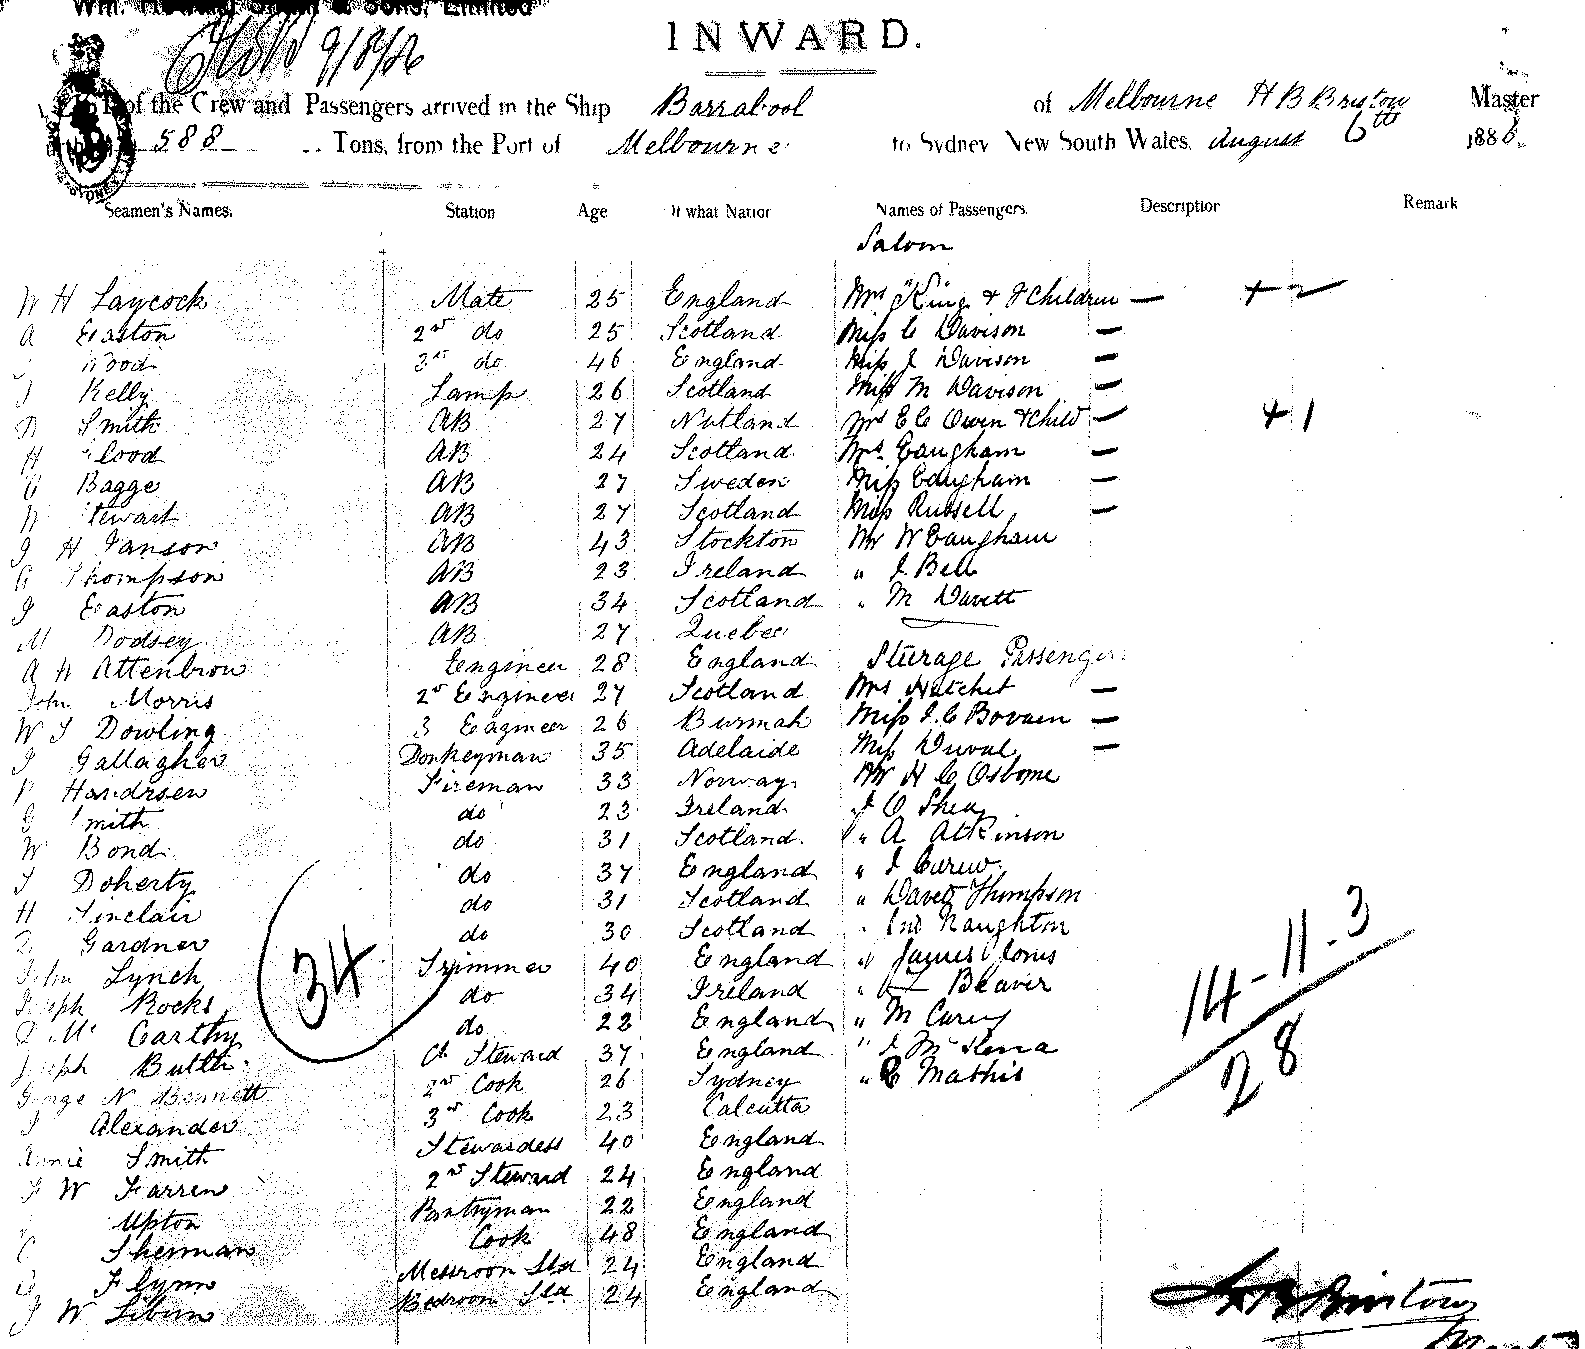 Wm. Howard Smith & Sons, Limited
9/8/86
INWARD.
of the Crew and Passengers arrived in the Ship Barrabool of Melbourne H B Bristow Master
588 Tons, from the Port of Melbourne to Sydney New South Wales, August 6th 1886.
Seamen's Names. Station Age Of what Nation Names of Passengers. Description Remark
Saloon
W H Laycock Mate 25 England Mrs King & 2 Children — + 2
A Easton 2nd do 25 Scotland Miss C Davison —
Wood 3rd do 46 England Miss J Davison —
J Kelly Lamp 26 Scotland Miss M Davison —
Smith AB 27 Mrs E C Owen & Child — + 1
H Flood AB 24 Scotland Mrs Caugham —
Bagge AB 27 Sweden Miss Caugham —
Stewart AB 27 Scotland Miss Russell —
J H Janson AB 43 Stockton Mr W Caugham
Thompson AB 23 Ireland " J Bell
J Easton AB 34 Scotland " M Davett
M Dodsey AB 27 Quebec
A H Attenbrow Engineer 28 England Sturage Passengers
John Morris 2nd Engineer 27 Scotland Mrs Hatchet —
W J Dowling 3 Engineer 26 Burmah Miss J. C Bovaen —
J Gallagher Donkeyman 35 Adelaide Miss Duval —
Handrsen Fireman 33 Norway Mr H C Osborne
Smith do 23 Ireland J O Shea
W Bond do 31 Scotland " A Atkinson
J Doherty do 37 England " J Carew
H Sinclair do 31 Scotland " Davett Thompson
Gardner do 30 Scotland " Jno Naughton
John Lynch Trimmer 40 England " James Jones
Joseph Rocks do 34 Ireland " Beaver
Mc Carthy do 22 England " M Carey
Joseph Butler Ch Steward 37 England " J
George N Bennett 2nd Cook 26 Sydney " C Mathis
J Alexander 3rd Cook 23 Calcutta
Annie Smith Stewardess 40 England
F W Farren 2nd Steward 24 England
Upton Pantryman 22 England
C Sherman Cook 48 England
Flynn Messroom Std 24 England
J W Bedroom Std 24 England
34
14-11-3
28
H B Bristow